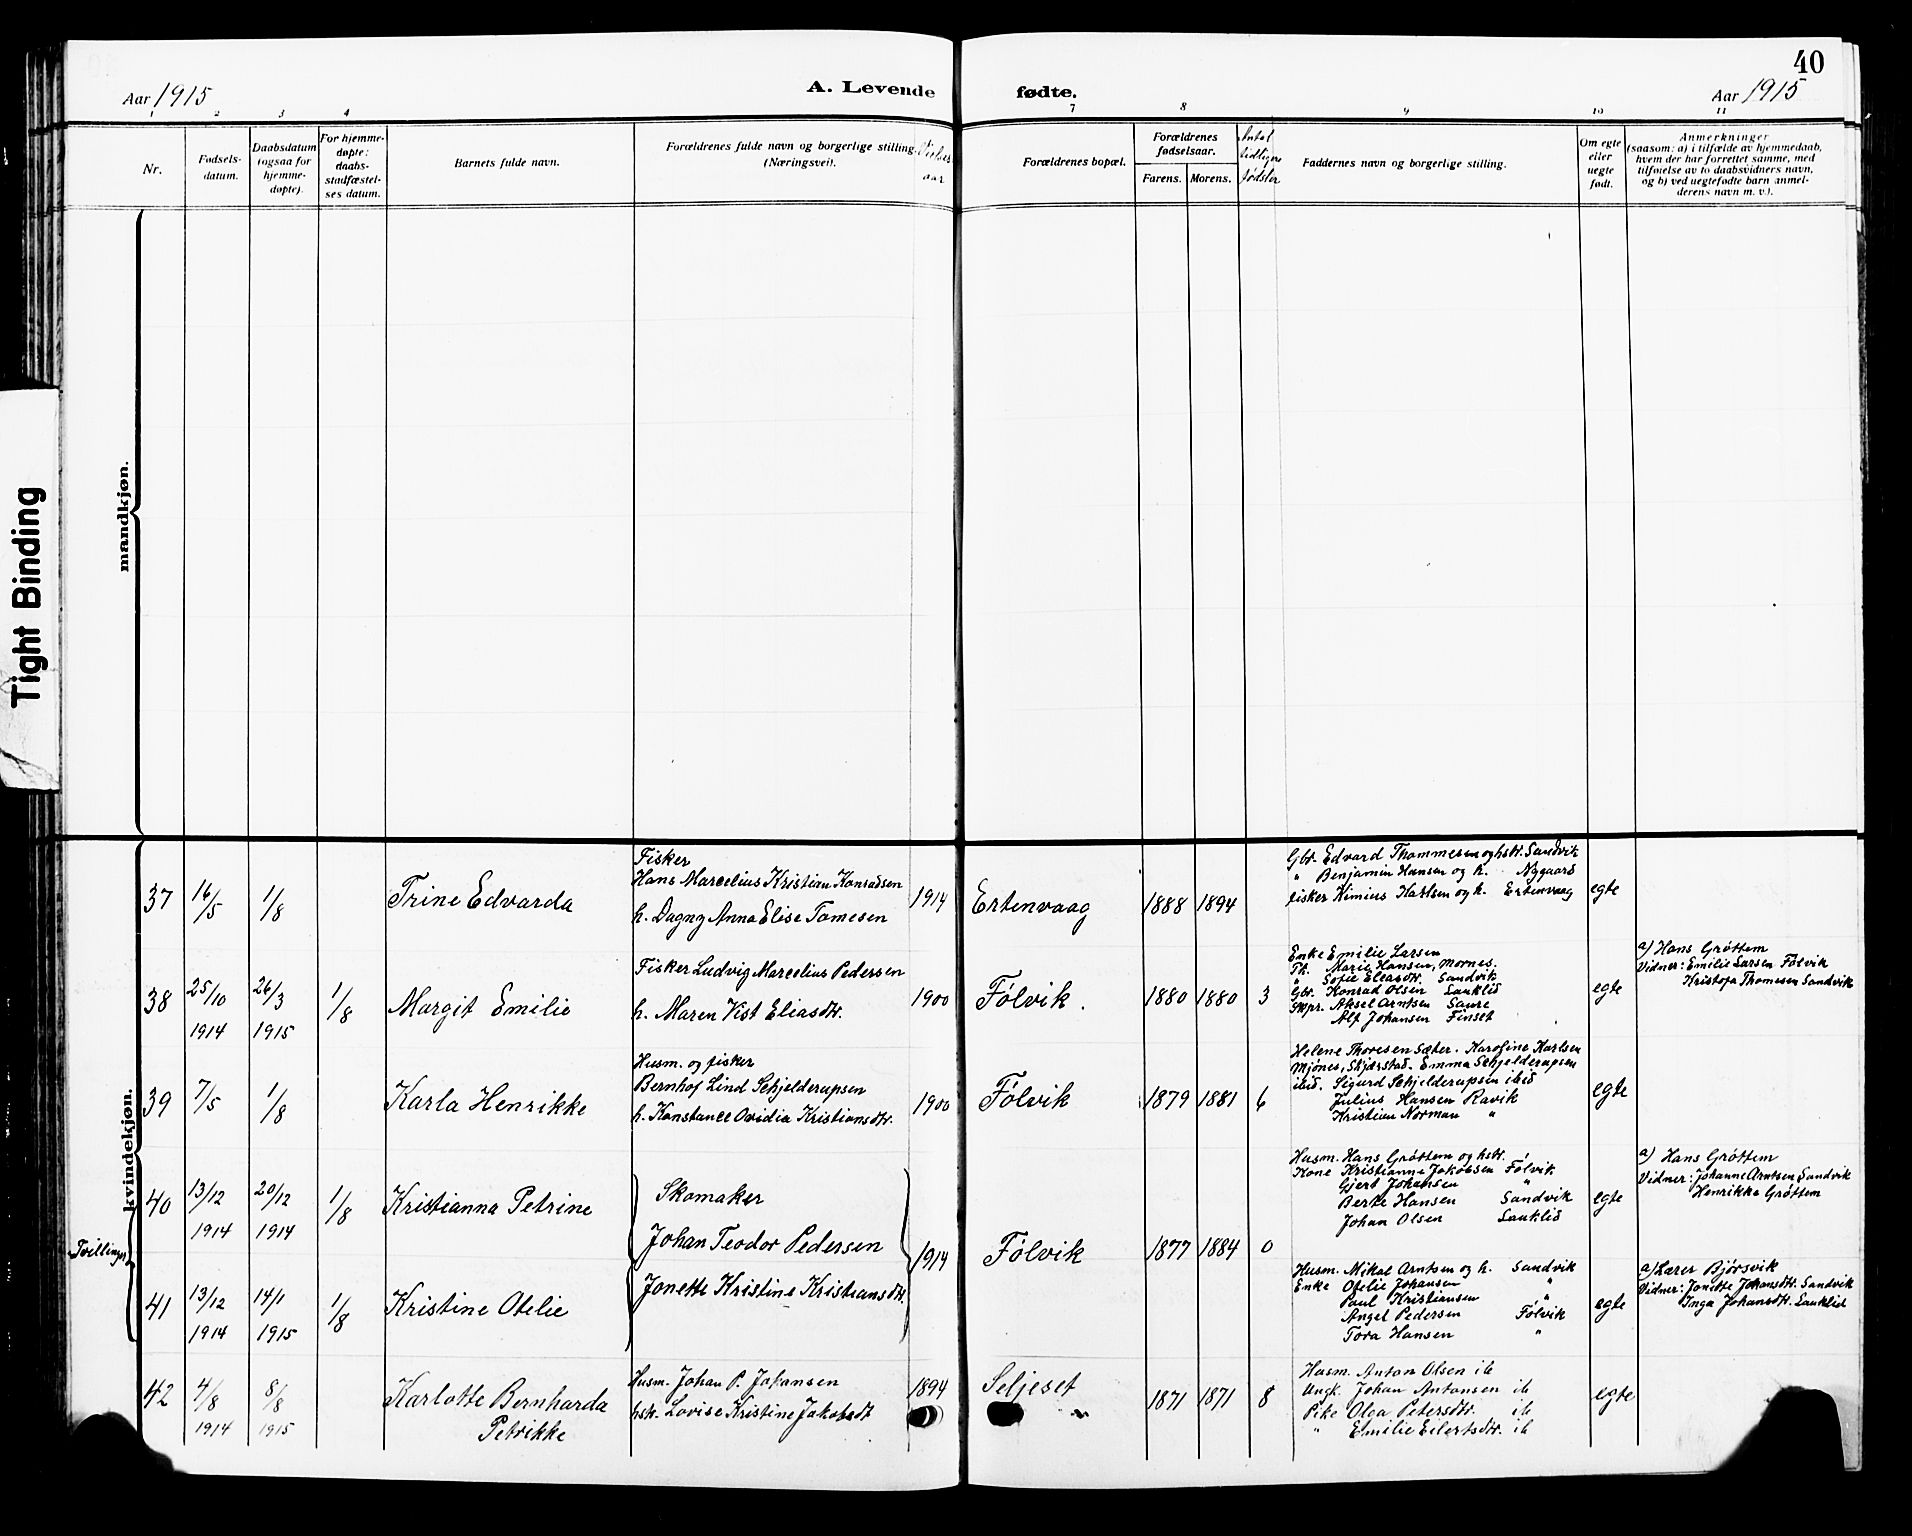 40
Aar 1915
A. Levende fødte.
Aar 1915
1 2 3 4 7 8 9 10 11
Nr.
Fødsels-
datum.
Daabsdatum
(ogsaa for
hjemme-
døpte).
For hjemme-
døpte:
daabs-
stadfæstel-
ses datum.
Barnets fulde navn.
Forældrenes fulde navn og borgerlige stilling
(Næringsvei).
Vielses
aar
Forældrenes bopæl.
Forældrenes
fødselsaar.
Farens. Morens.
Antal
tidligere
fødsler
Faddernes navn og borgerlige stilling.
Om egte
eller
uegte
født.
Anmerkninger
(saasom: a) i tilfælde av hjemmedaab,
hvem der har forrettet samme, med
tilføielse av to daabsvidners navn,
og b) ved uegtefødte barn anmel-
derens navn m. v.).
Tight Binding
mandkjøn.
kvindekjøn.
37 16/5 1/8
Trine Edvarda
Fisker
Hans Marcelius Kristian Konradsen
h. Dagny Anna Elise Tomesen
1914
Ertenvaag
1888 1894
Gbr. Edvard Thommesen og hstr. Sandvik
" Benjamin Hansen og h. Nygaard
fisker Kimius Karlsen og h. Ertenvaag
egte
38 25/10 1914 26/3 1915 1/8
Margit Emilie
Fisker Ludvig Marcelius Pedersen
h. Maren Vist Eliasdtr.
1900
Følvik.
1880 1880 3
Enke Emilie Larsen
Pk. Marie Hansen, Mornes.
" Sofie Eleasdtr. Sandvik
Gbr. Konrad Olsen Lauklid
Aksel Arntsen Saure
Alf Johansen Finset
egte
a) Hans Grøttem
Vidner: Emilie Larsen Følvik
Kristofa Thomesen Sandvik
39 7/5 1/8
Karla Henrikke
Husm. og fisker
Bernhof Lind Schjelderupsen
h. Konstance Ovidia Kristiansdtr.
1900
Følvik
1879 1881 6
Helene Thoresen Sæter. Karoline Karlsen
Mjønes, Skjærstad. Emma Schjelderupsen
ibid. Sigurd Schjelderupsen ibid
Julius Hansen Ravik
Kristian Norman "
egte
Tvillinger
40 13/12 1914 20/12 1914 1/8
Kristianna Petrine
Skomaker
Johan Teodor Pedersen
Jonette Kristine Kristiansdtr.
1914
Følvik
1877 1884 0
Husm. Hans Grøttem og hstr.
Kone Kristianne Jakobsen Følvik
Gjert Johansen "
Berte Hansen Sandvik
Johan Olsen Lauklid
egte
a) Hans Grøttem
Vidner: Johanne Arntsen Sandvik
Henrikka Grøttem
41 13/12 1914 14/1 1915 1/8
Kristine Otelie
Husm. Mikal Arntsen og h. Sandvik
Enke Otelie Johansen "
Paul Kristiansen "
Angel Pedersen Følvik
Tora Hansen "
egte
a) Lærer Bjørsvik
Vidner: Jonette Johansdtr. Sandvik
Inga Johansdtr. Lauklid
42 4/8 1914 8/8 1915
Karlotte Bernharda
Petrikke
Husm. Johan P. Johansen
hstr. Lovise Kristine Jakobsdt
1894
Seljeset
1871 1871 8
Husm. Anton Olsen ib
Ungk. Johan Antonsen ib
Pike Olga Petersdtr. ib
" Emilie Eilertsdtr. ib
egte